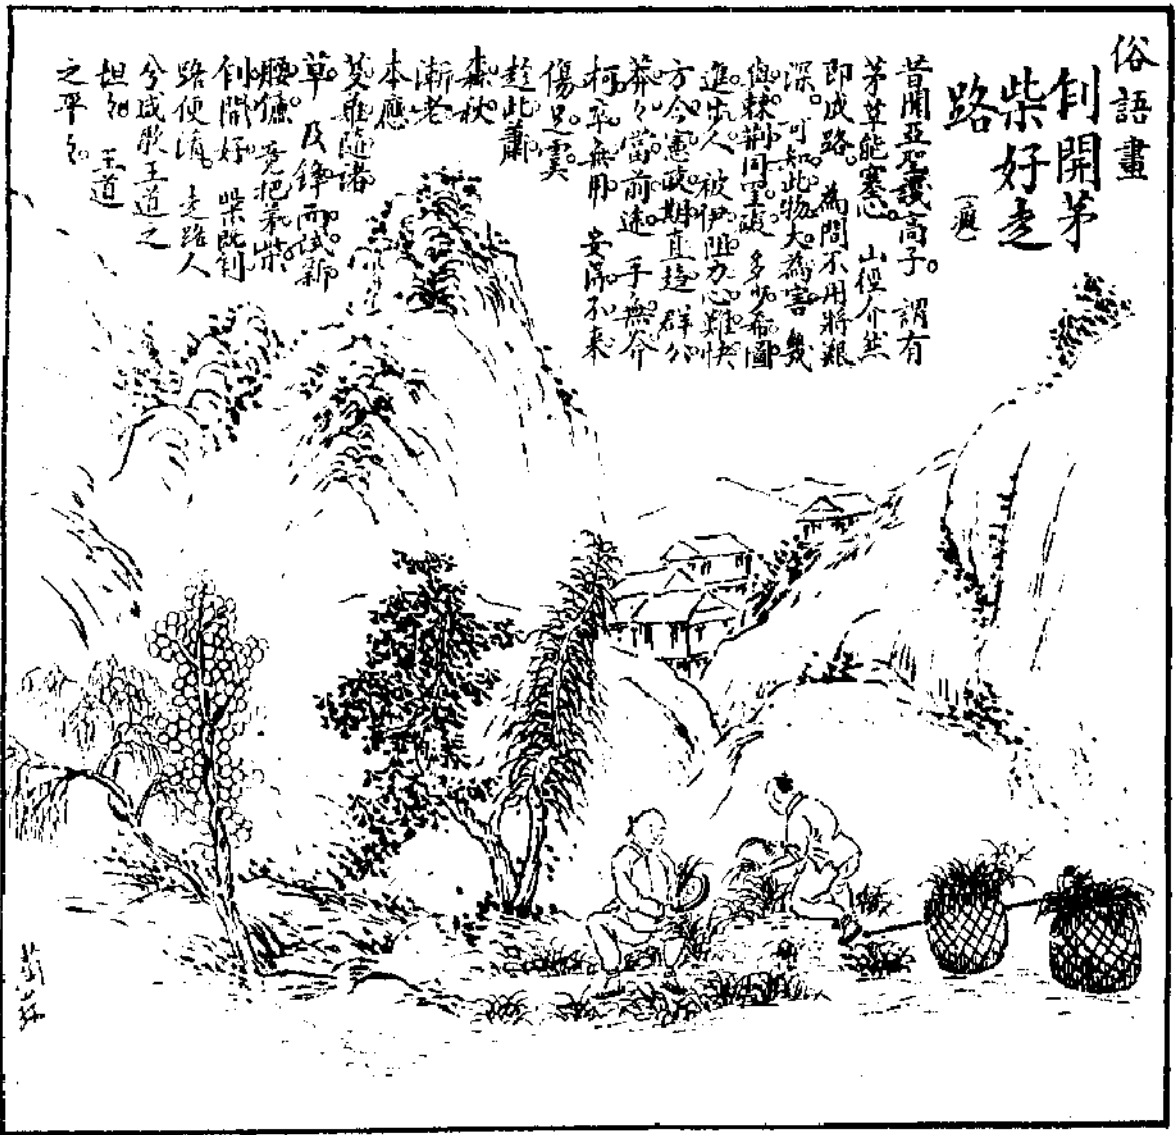 俗語畫
刮開茅
柴好走
路
昔聞亞聖譏高子。謂有
茅草能塞心。山徑介然
即成路。為間不用將艱
深。可知此物大為害。幾
與棘荊同里 多少希圖
進步人。被伊阻力心難快
方今憲政期直趨 群公
莽々當前途。手無斧
柯卒無用 安得不來
傷足
趁此蕭
森秋
漸老
本應
芟雜隨諸
草。及鋒而試新
腰鐮。竟把柴
刮開好。柴既刮
路便 走路人
兮咸歌王道之
坦坦 王道
之平平